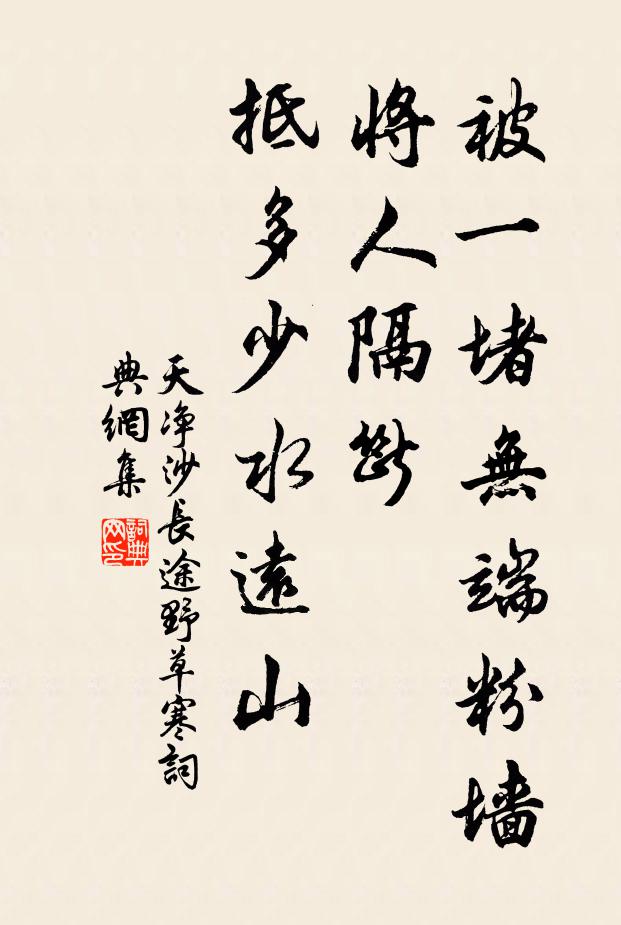 被一堵無端粉墙
將人隔斷
抵多少水遠山
天净沙長途野草寒詞
典網集
詞典网印